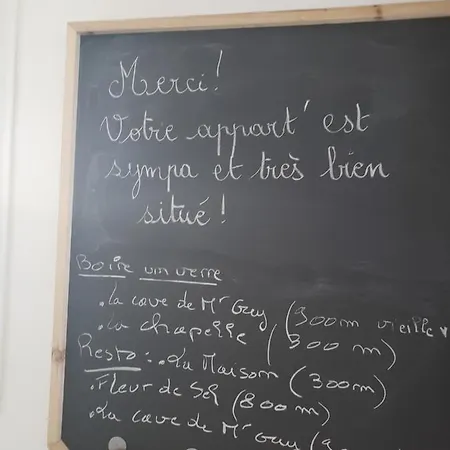 Merci!
Votre appart' est
sympa et très bien
situé!
Boire un verre
.La cave de Mr Guy (300m vieille v
.La chapelle (300 m)
Resto: .La Maison (300m)
.Fleur de Sel (800m)
.La cave de Mr Guy (